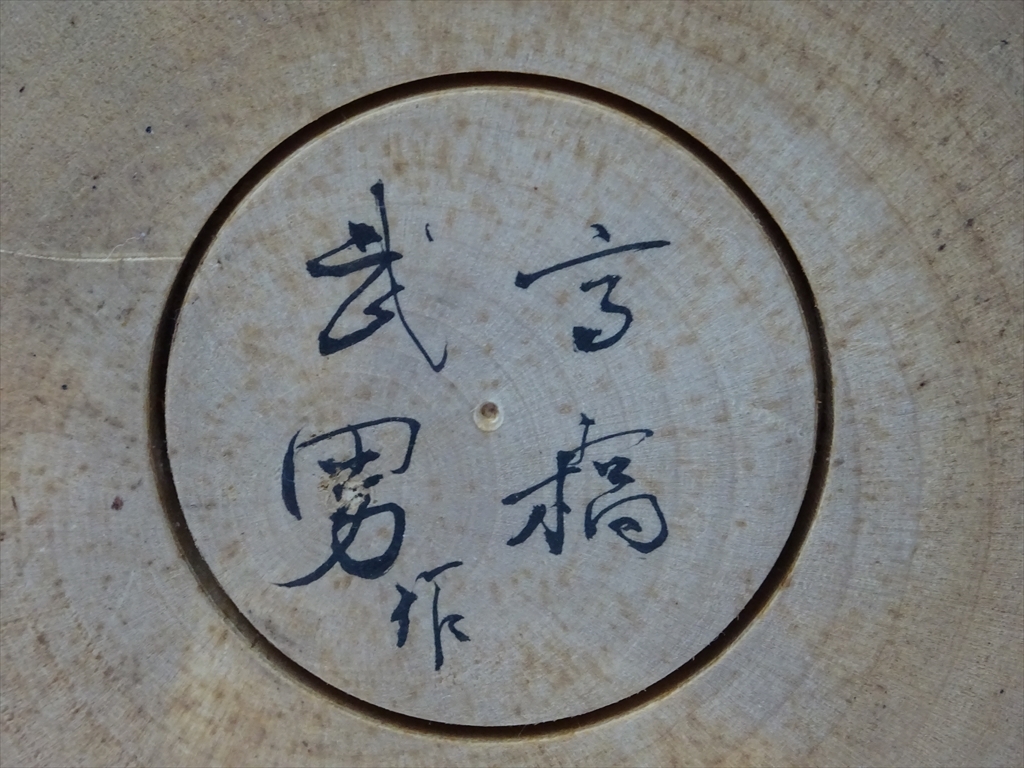 高橋
武男
作